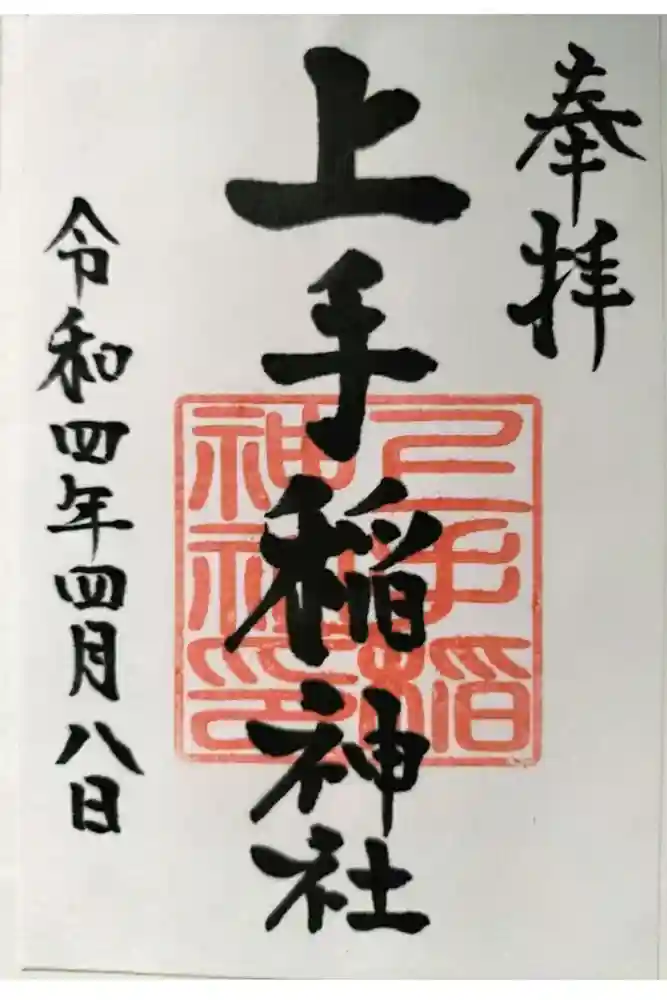 奉拝
上手稲神社
上手稲
神社印
令和四年四月八日